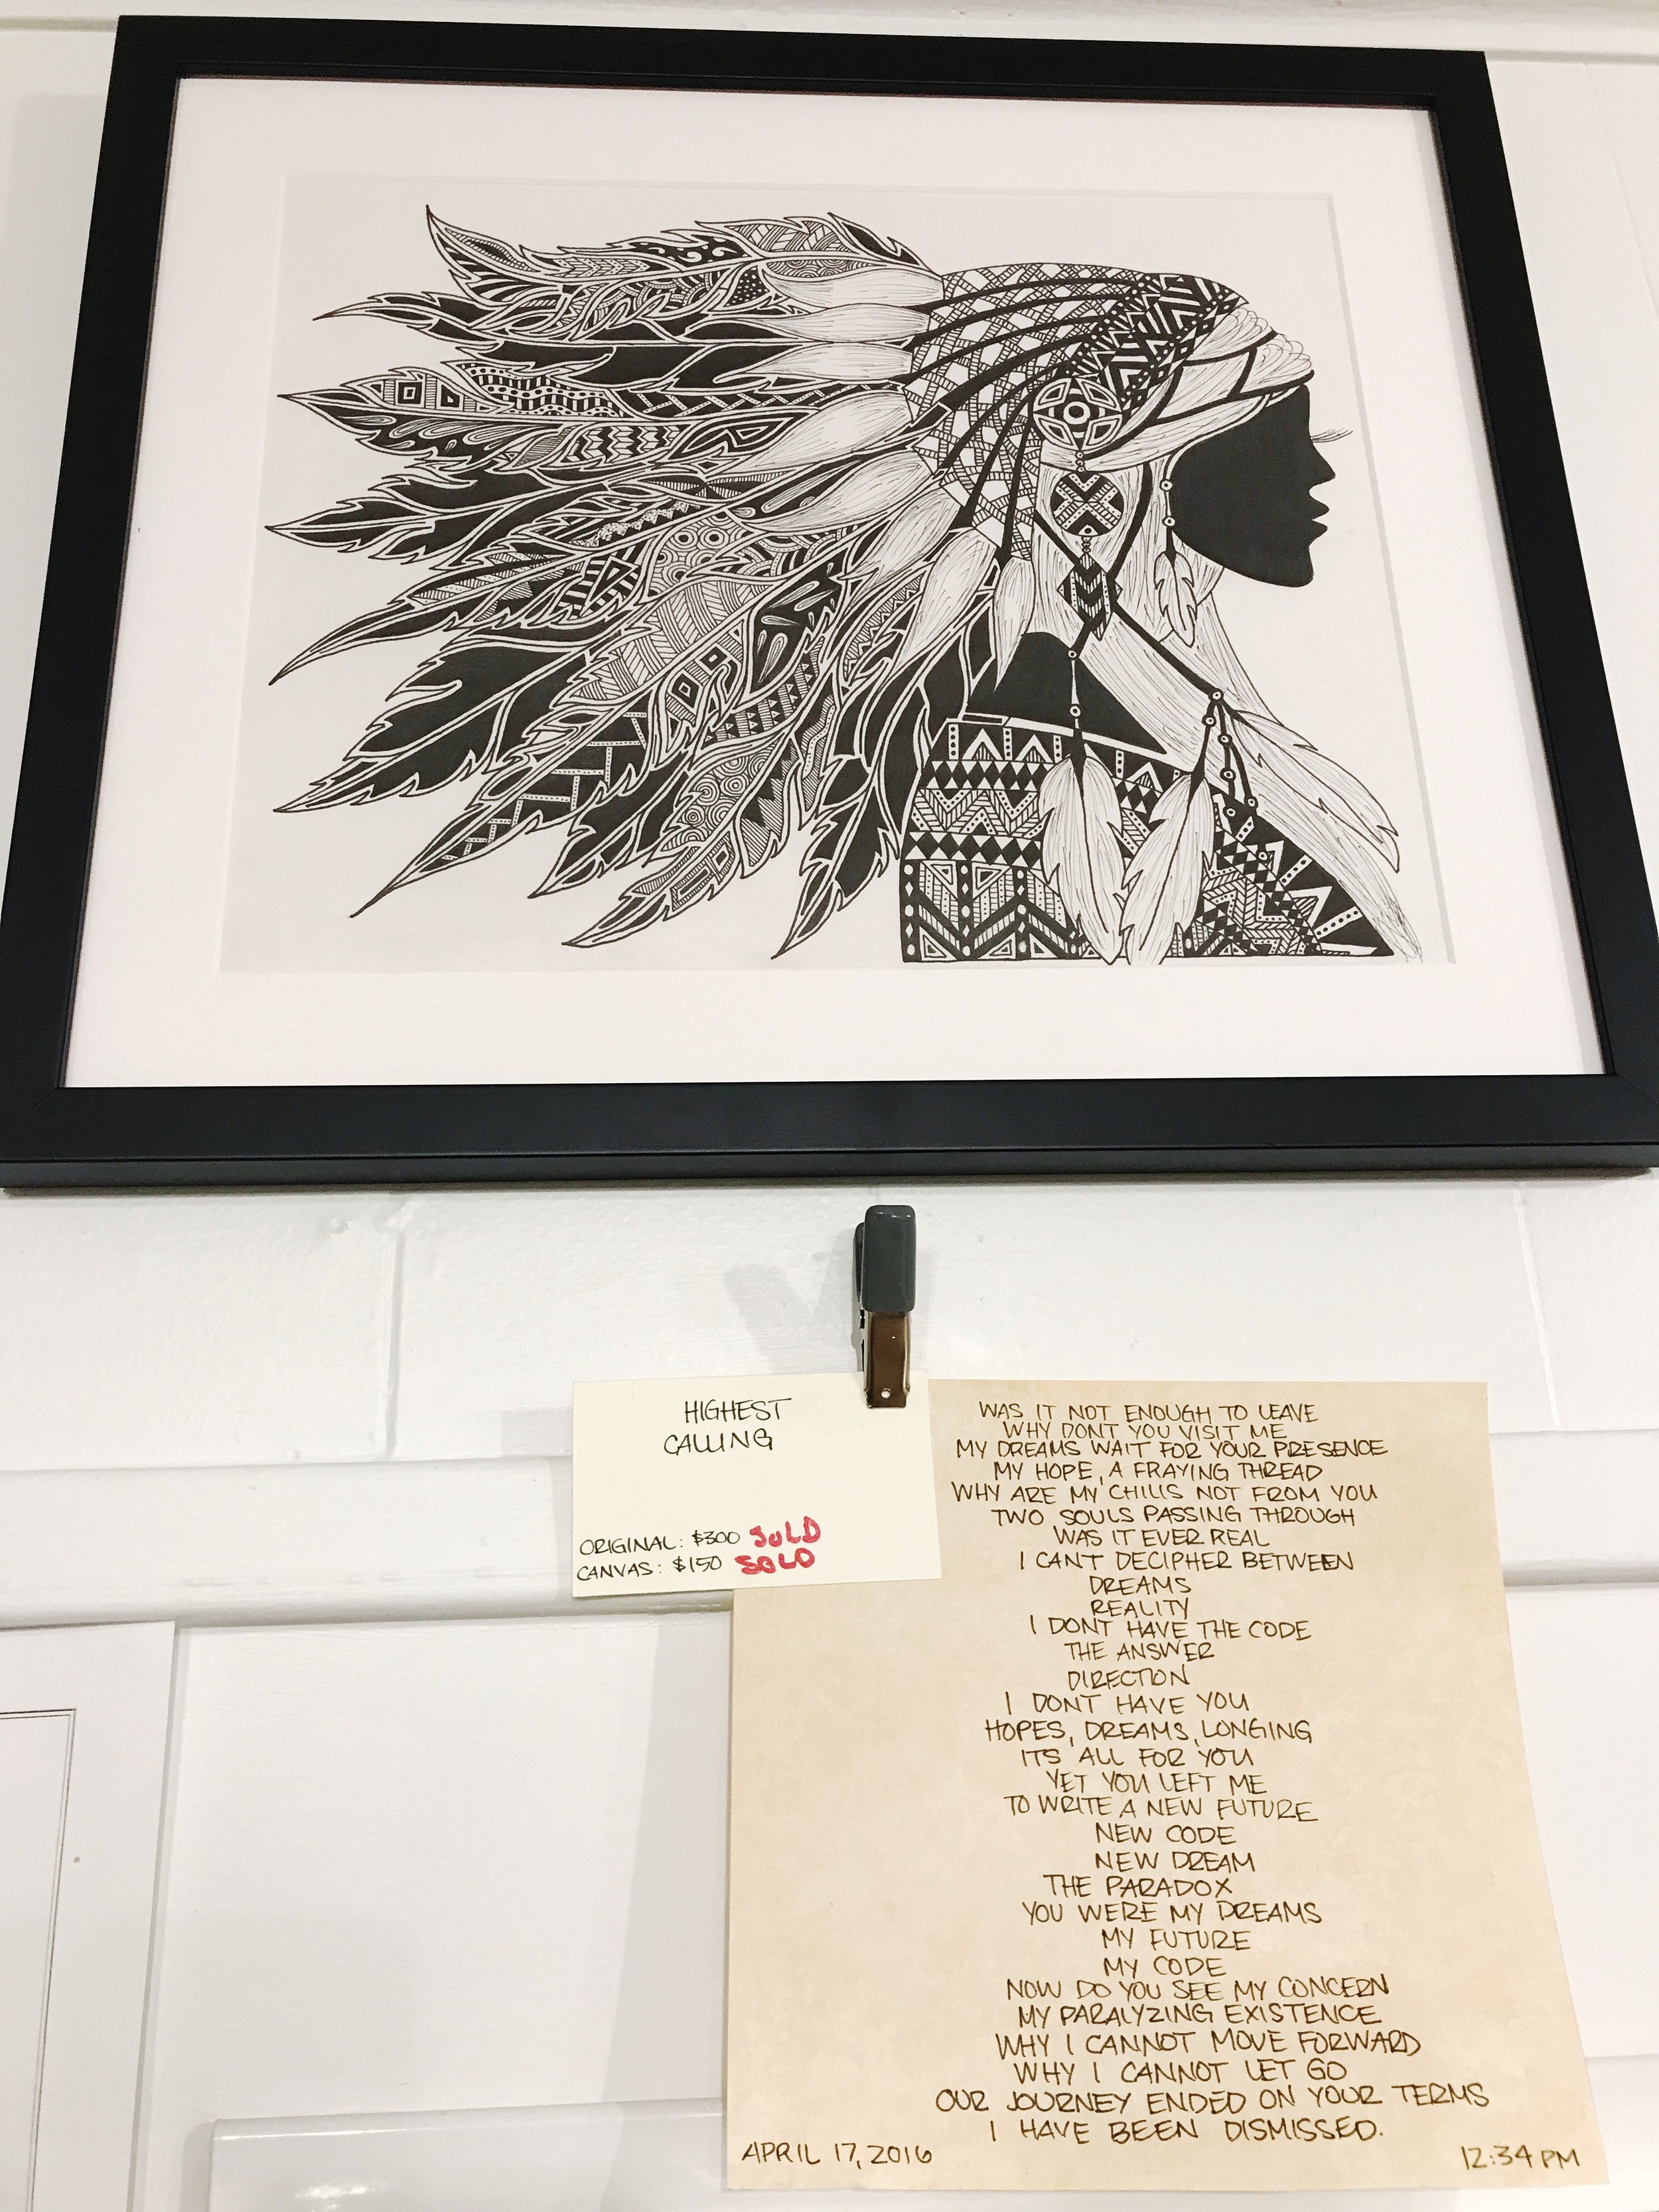 HIGHEST
CALLING
ORIGINAL: $300 SOLD
CANVAS: $150 SOLD
WAS IT NOT ENOUGH TO LEAVE
WHY DONT YOU VISIT ME
MY DREAMS WAIT FOR YOUR PRESENCE
MY HOPE, A FRAYING THREAD
WHY ARE MY CHILLS NOT FROM YOU
TWO SOULS PASSING THROUGH
WAS IT EVER REAL
I CAN'T DECIPHER BETWEEN
DREAMS
REALITY
I DONT HAVE THE CODE
THE ANSWER
DIRECTION
I DONT HAVE YOU
HOPES, DREAMS, LONGING
ITS ALL FOR YOU
YET YOU LEFT ME
TO WRITE A NEW FUTURE
NEW CODE
NEW DREAM
THE PARADOX
YOU WERE MY DREAMS
MY FUTURE
MY CODE
NOW DO YOU SEE MY CONCERN
MY PARALYZING EXISTENCE
WHY I CANNOT MOVE FORWARD
WHY I CANNOT LET GO
OUR JOURNEY ENDED ON YOUR TERMS
I HAVE BEEN DISMISSED.
APRIL 17, 2016 12:34 PM